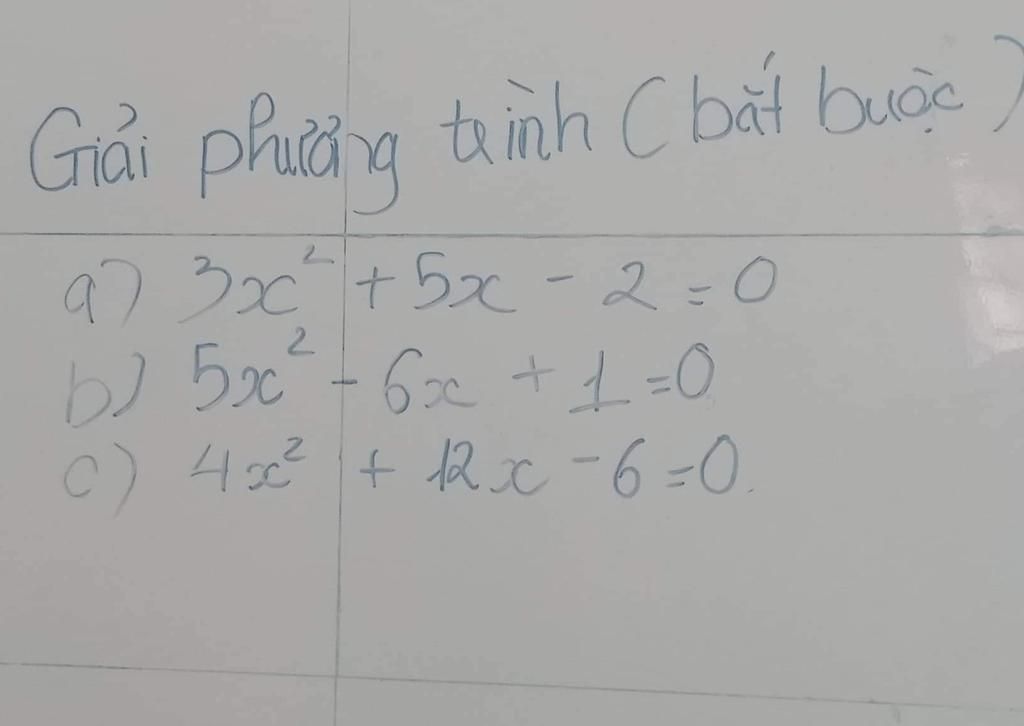 Giải phương trình (bắt buộc)
a) 3x² + 5x - 2 = 0
b) 5x² - 6x + 1 = 0
c) 4x² + 12x - 6 = 0.